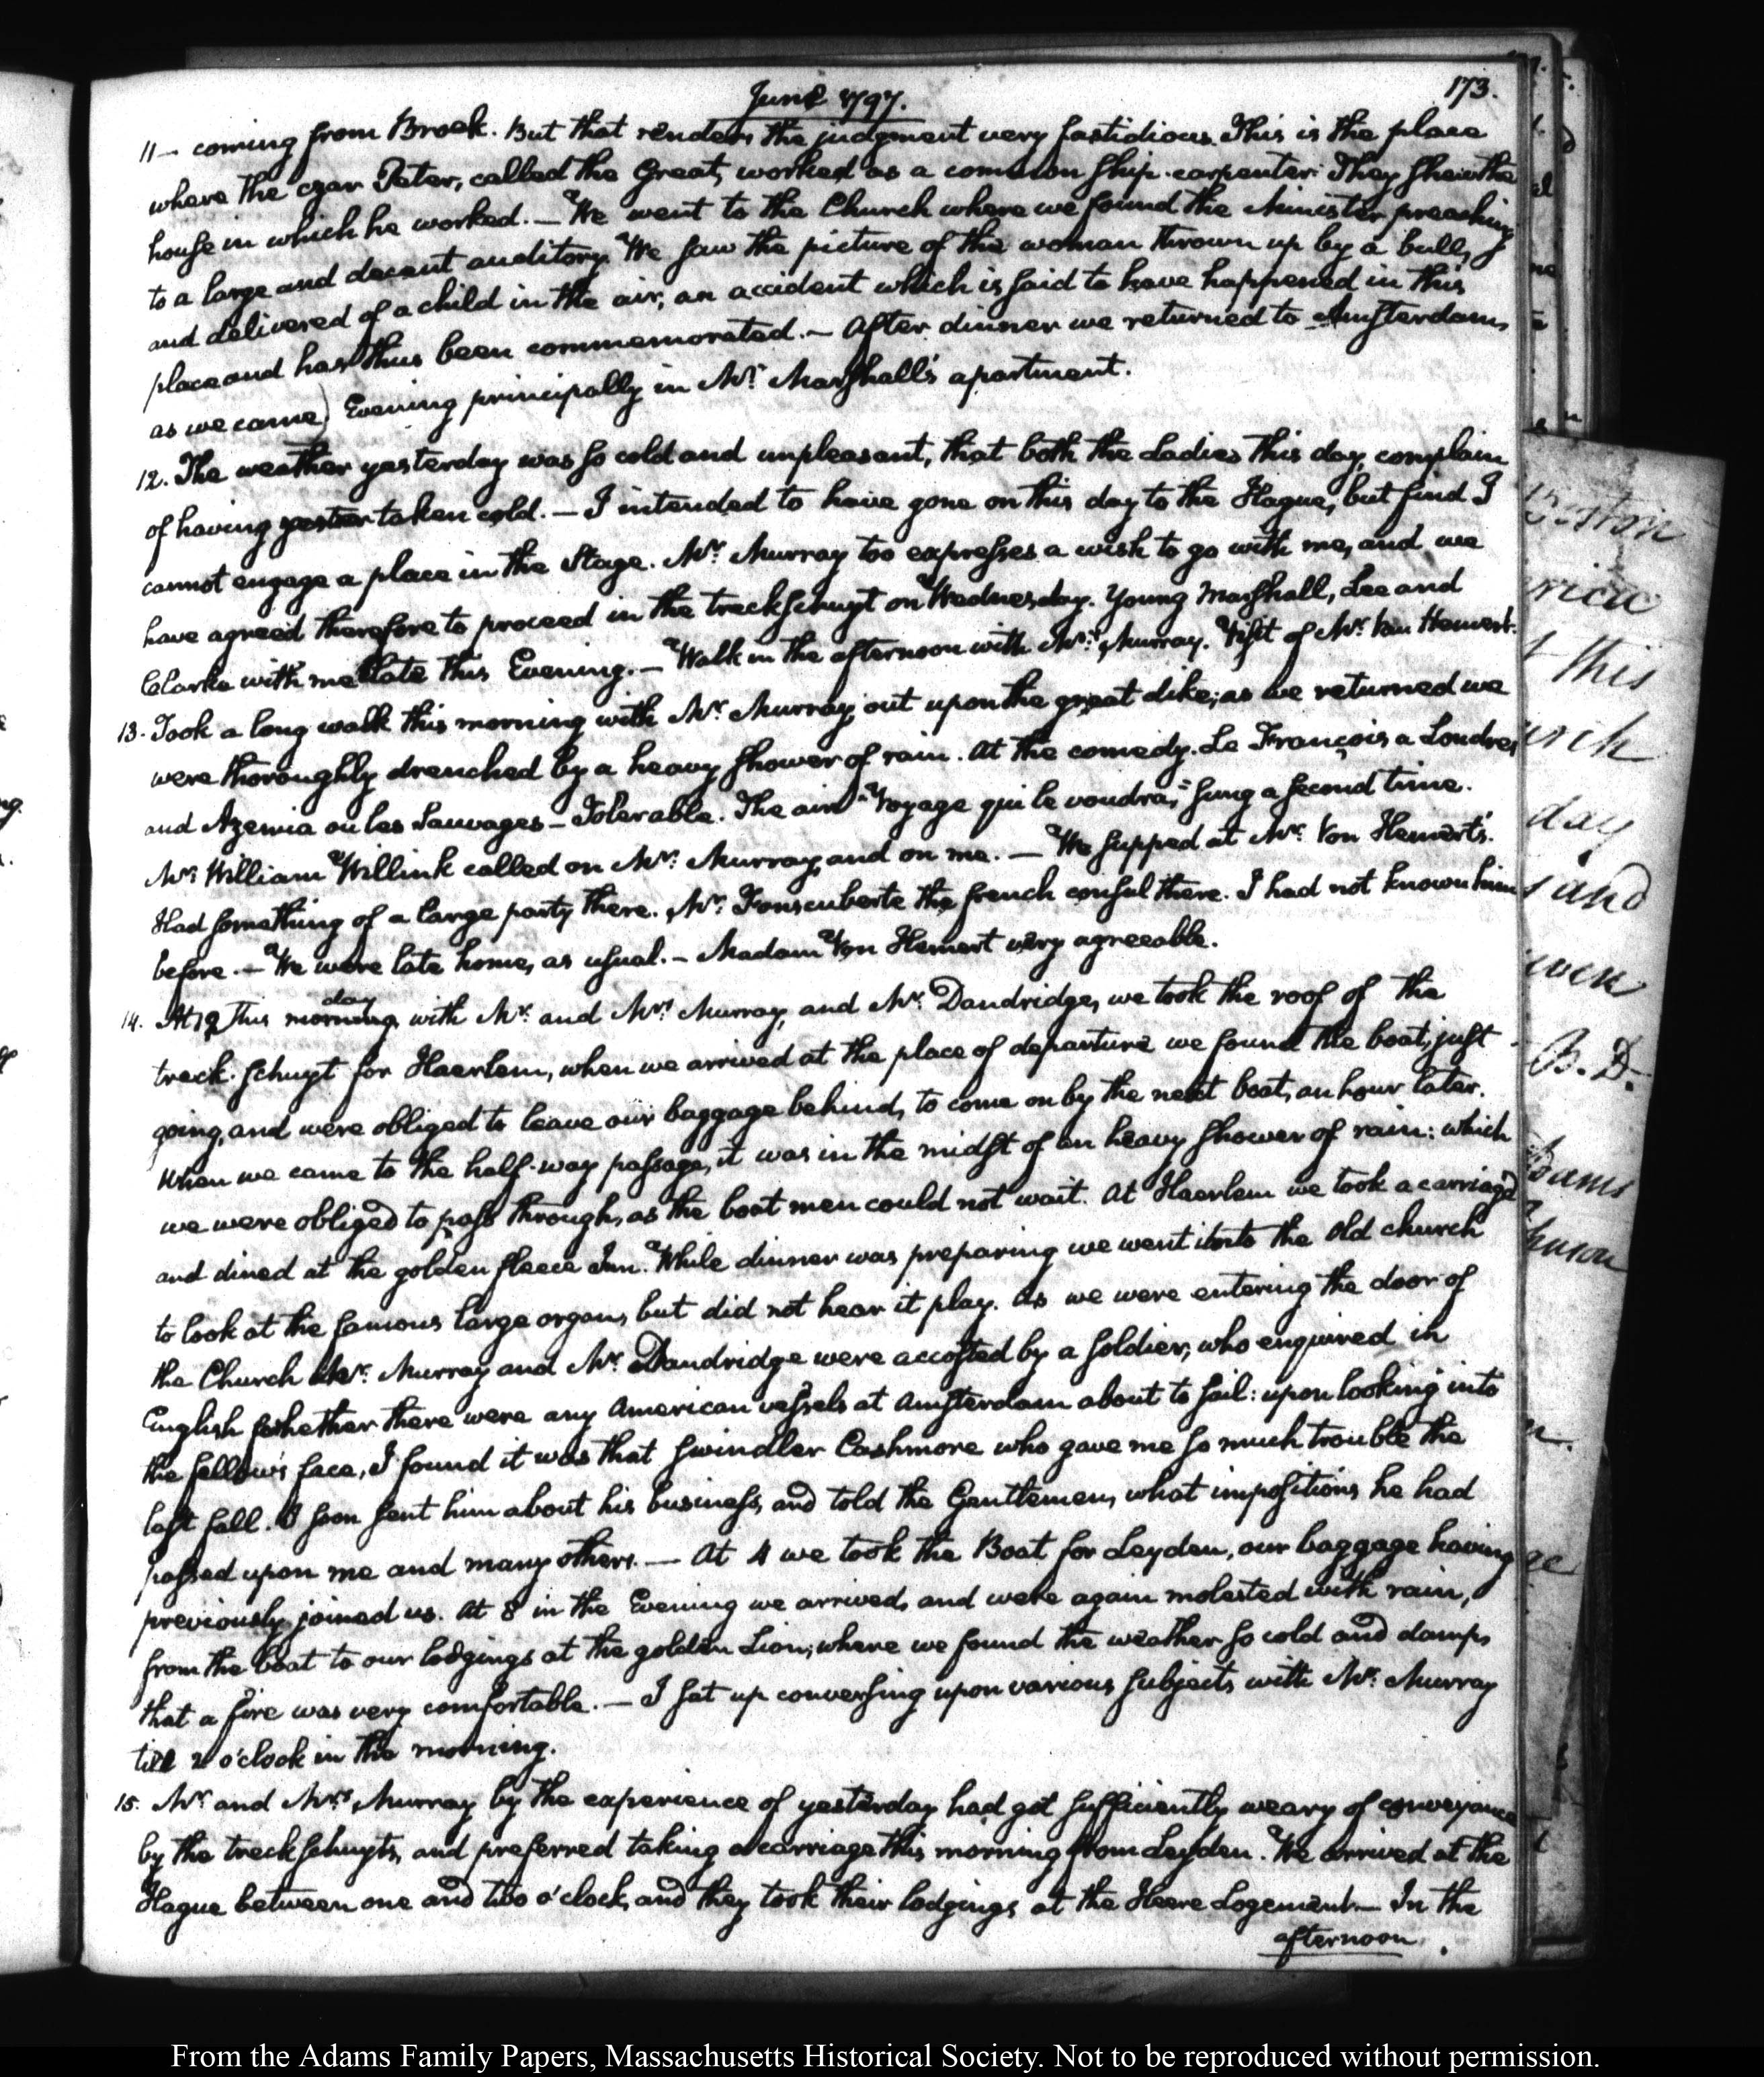 June 1797.
173.
11— coming from Broek. But that renders the judgment very fastidious. This is the place
where the czar Peter, called the Great, worked as a common ship-carpenter. They shew the
house in which he worked. — We went to the Church where we found the Minister preaching
to a large and decent auditory. We saw the picture of the woman thrown up by a bull,
and delivered of a child in the air, an accident which is said to have happened in this
place and has thus been commemorated. — After dinner we returned to Amsterdam,
as we came) Evening principally in Mr. Marshall's apartment.
12. The weather yesterday was so cold and unpleasant, that both the Ladies this day, complain
of having taken cold. — I intended to have gone on this day to the Hague, but find I
cannot engage a place in the Stage. Mr. Murray too expresses a wish to go with me, and we
have agreed therefore to proceed in the treckschuyt on Wednesday. Young Marshall, Lee and
Clarke with me late this Evening. — Walk in the afternoon with Mrs. Murray. Visit of Mr. Van Hemert.
13. Took a long walk this morning with Mr. Murray, out upon the great dike; as we returned we
were thoroughly drenched by a heavy shower of rain. At the comedy. Le François a Londres
and Azemia ou les Sauvages — Tolerable. The air "Voyage qui le voudra," sung a second time.
Mr. William Willink called on Mr. Murray, and on me. — We supped at Mr. Van Hemert's.
Had something of a large party there. Mr. the french consul there. I had not known him
before. — We were late home, as usual. — Madam Van Hemert very agreeable.
day
14. At 12 this morning with Mr. and Mrs. Murray, and Mr. Dandridge, we took the roof of the
treck-schuyt for Haerlem, when we arrived at the place of departure we found the boat, just
going, and were obliged to leave our baggage behind, to come on by the next boat, an hour later.
When we came to the half-way passage, it was in the midst of an heavy shower of rain: which
we were obliged to pass through, as the boat men could not wait. At Haerlem we took a carriage
and dined at the golden fleece Inn. While dinner was preparing we went into the old church
to look at the famous large organ, but did not hear it play. As we were entering the door of
the Church Mr. Murray and Mr. Dandridge were accosted by a soldier, who enquired in
English whether there were any American vessels at Amsterdam about to sail: upon looking into
the fellow's face, I found it was that swindler Cashmore who gave me so much trouble the
last fall. I soon sent him about his business, and told the Gentlemen, what impositions he had
passed upon me and many others. — At 4 we took the Boat for Leyden, our baggage having
previously joined us. At 8 in the Evening we arrived, and were again molested with rain,
from the boat to our lodgings at the golden Lion, where we found the weather so cold and damp,
that a fire was very comfortable. — I sat up conversing upon various subjects with Mr. Murray
till 2 o'clock in the morning.
15. Mr. and Mrs. Murray by the experience of yesterday had got sufficiently weary of conveyance
by the treckschuyts, and preferred taking a carriage this morning from Leyden. We arrived at the
Hague between one and two o'clock, and they took their lodgings at the Heere Logement. — In the
afternoon
this
day
and
B. D.
From the Adams Family Papers, Massachusetts Historical Society. Not to be reproduced without permission.